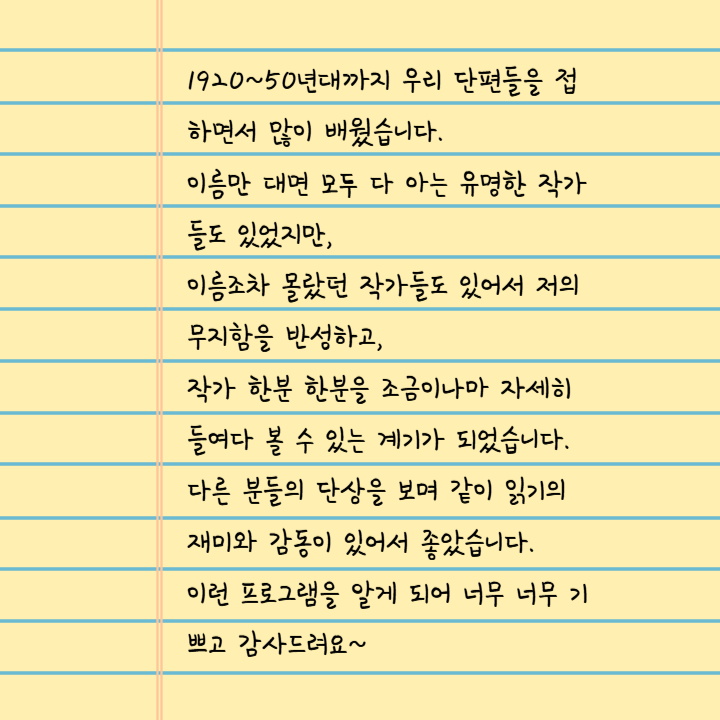 1920~50년대까지 우리 단편들을 접
하면서 많이 배웠습니다.
이름만 대면 모두 다 아는 유명한 작가
들도 있었지만,
이름조차 몰랐던 작가들도 있어서 저의
무지함을 반성하고,
작가 한분 한분을 조금이나마 자세히
들여다 볼 수 있는 계기가 되었습니다.
다른 분들의 단상을 보며 같이 읽기의
재미와 감동이 있어서 좋았습니다.
이런 프로그램을 알게 되어 너무 너무 기
쁘고 감사드려요~